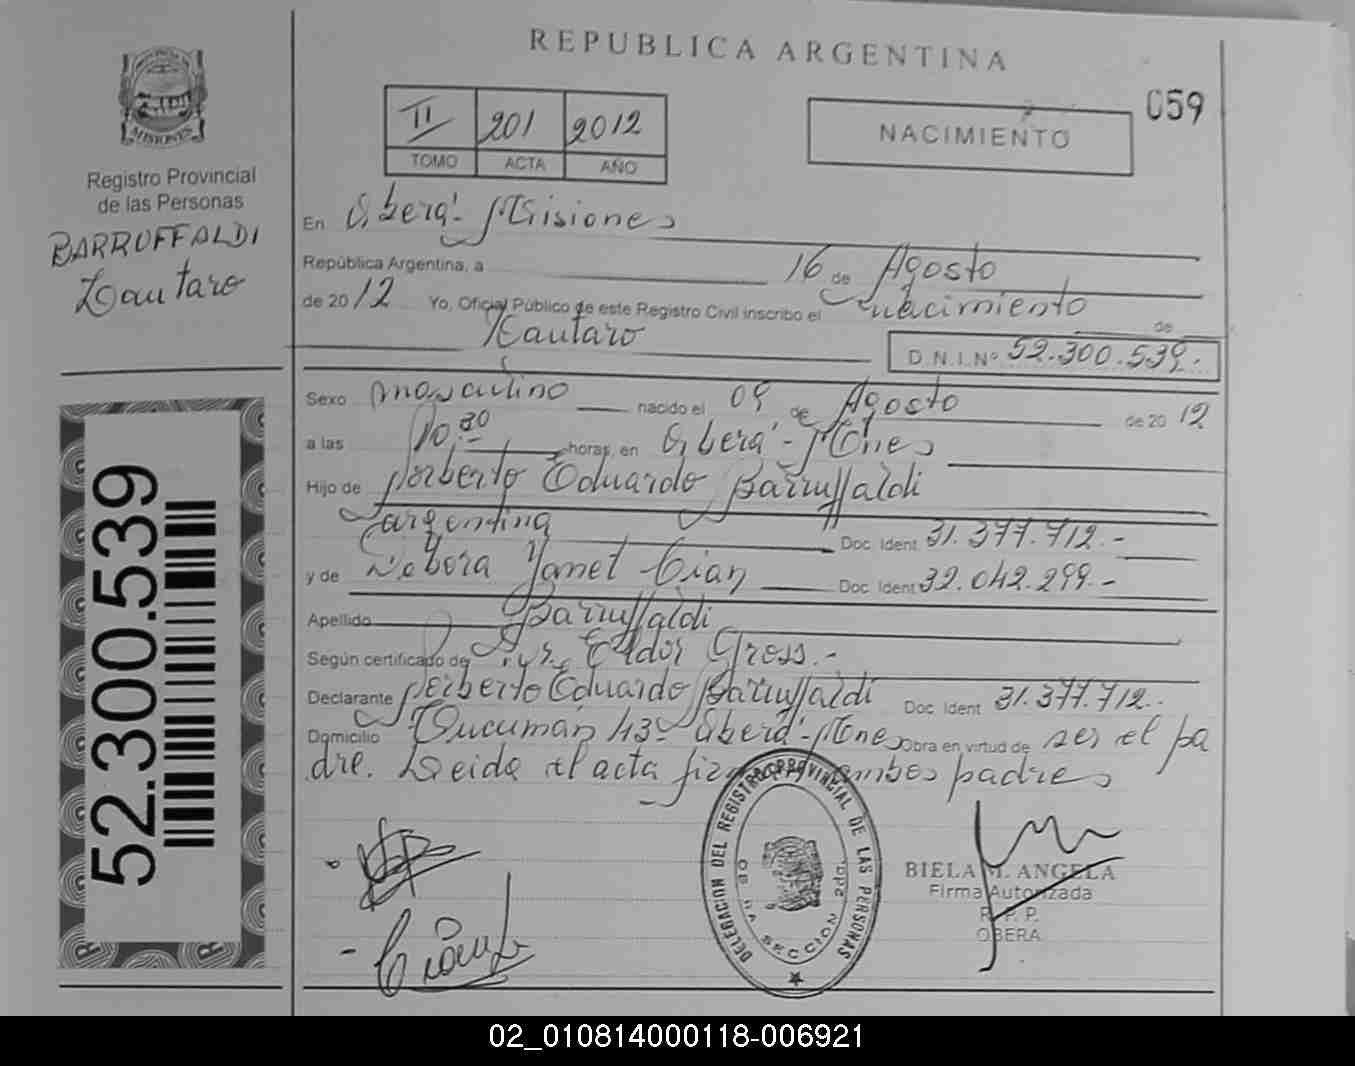 REPUBLICA ARGENTINA
059
II 201 2012
TOMO ACTA AÑO
NACIMIENTO
MISIONES
Registro Provincial
de las Personas
BARRUFFALDI
Lautaro
52.300.539
En Oberá - Misiones
República Argentina, a 16 de Agosto
de 2012 Yo, Oficial Público de este Registro Civil inscribo el nacimiento de
Lautaro
D.N.I.Nº 52.300.539.-
Sexo masculino nacido el 09 de Agosto de 2012
a las 10.30 horas, en Oberá - Mnes
Hijo de Norberto Eduardo Barruffaldi
argentina Doc Ident 31.377.712.-
y de Débora Yanet Cian Doc Ident 32.042.299.-
Apellido Barruffaldi
Según certificado de Eldor Gross.-
Declarante Norberto Eduardo Barruffaldi Doc Ident 31.377.712.-
Domicilio Tucumán 43- Oberá - Mnes Obra en virtud de ser el pa
dre. Leida el acta ambos padres
DELEGACION DEL REGISTRO PROVINCIAL DE LAS PERSONAS
SECCION
BIELA M. ANGELA
Firma Autorizada
R. P. P.
OBERA
02_010814000118-006921